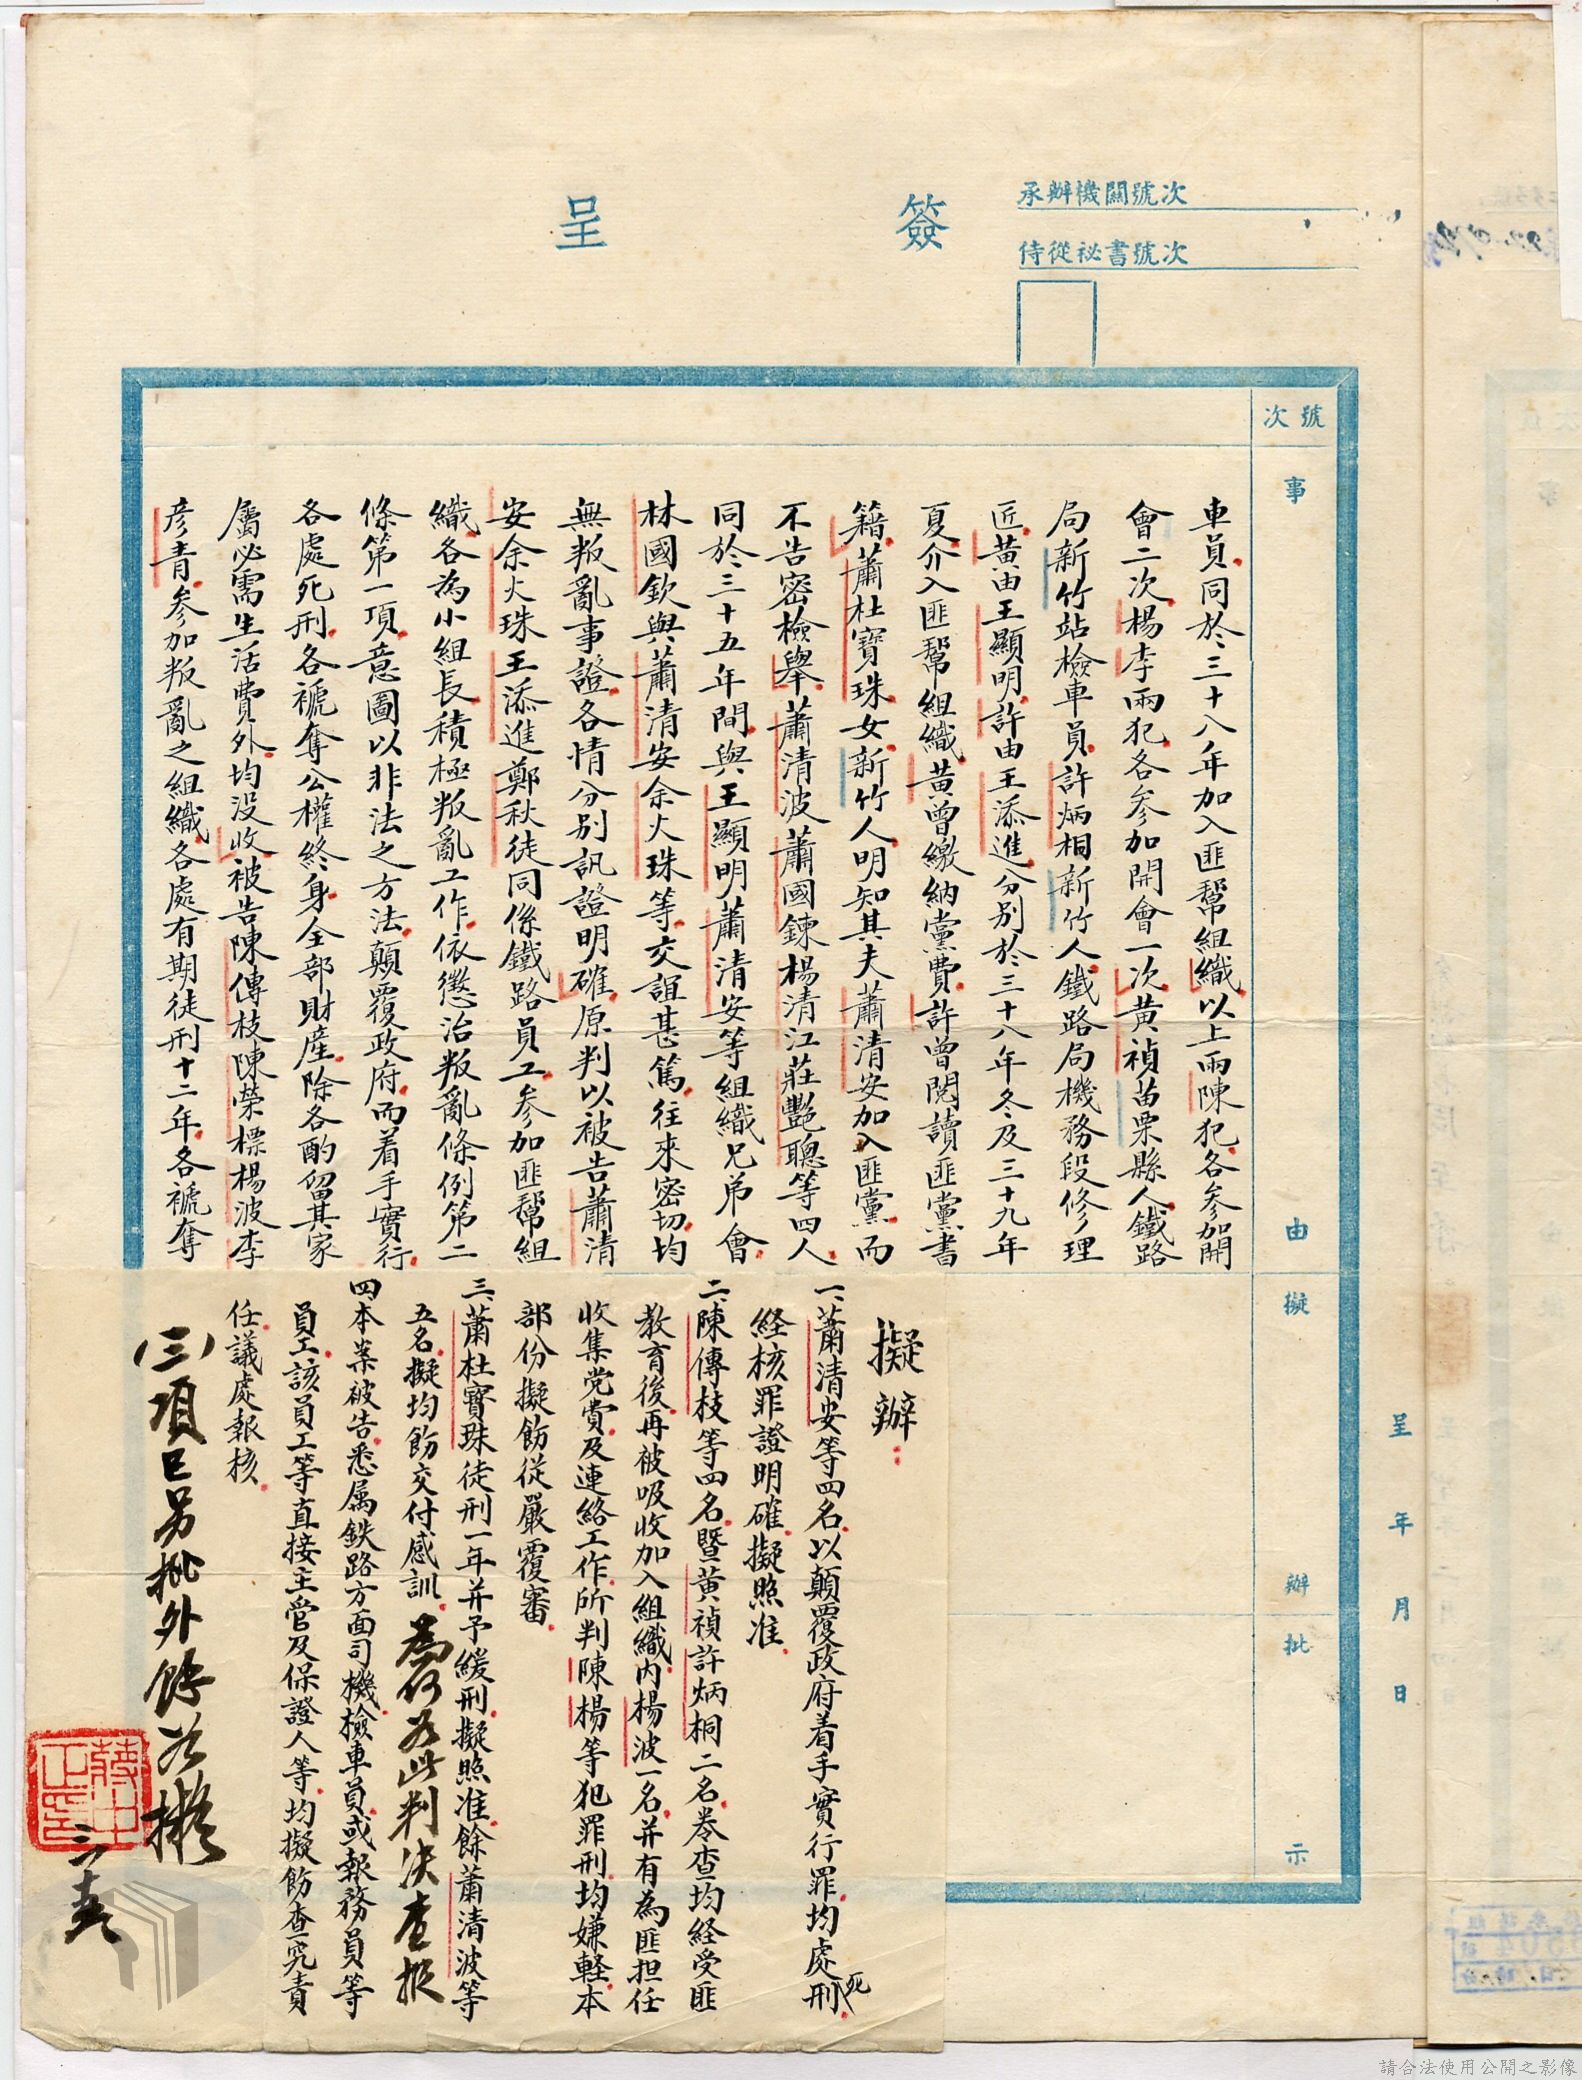 簽呈
承辦機關號次
侍從祕書號次
號次
事由
擬辦
批示
呈 年 月 日
車員同於三十八年加入匪幫組織以上兩陳犯各參加開
會二次楊李兩犯各參加開會一次黃禎苗栗縣人鐵路
局新竹站檢車員許炳相新竹人鐵路局機務段修理
匠黃由王顯明許由王添進分別於三十八年冬及三十九年
夏介入匪幫組織黃曾繳納黨費許曾閱讀匪黨書
籍蕭杜寶珠女新竹人明知其夫蕭清安加入匪黨而
不告密檢舉蕭清波蕭國鍊楊清江莊艷聰等四人
同於三十五年間與王顯明蕭清安等組織兄弟會
林國欽與蕭清安余火珠等交誼甚篤往來密切均
無叛亂事證各情分別訊證明確原判以被告蕭清
安余火珠王添進鄭秋徒同係鐵路員工參加匪幫組
織各為小組長積極叛亂工作依懲治叛亂條例第二
條第一項意圖以非法之方法顛覆政府而着手實行
各處死刑各褫奪公權終身全部財產除各酌留其家
屬必需生活費外均沒收被告陳傳枝陳榮標楊波李
彥青參加叛亂之組織各處有期徒刑十二年各褫奪
擬辦
一、蕭清安等四名以顛覆政府着手實行罪均處死刑
經核罪證明確擬照准
二、陳傳枝等四名暨黃禎許炳桐二名卷查均經受匪
教育後再被吸收加入組織內楊波一名并有為匪担任
收集党賞及連絡工作所判陳楊等犯罪刑均嫌輕本
部份擬飭從嚴覆審
三、蕭杜寶珠徒刑一年并予緩刑擬照准餘蕭清波等
五名擬均飭交付感訓 為何如此判決查报
四、本案被告悉属鉄路方面司機檢車員或報務員等
員工該員工等直接主管及保證人等均擬飭查究責
任議處報核
(三)項已另批外餘如擬
蔣中正印